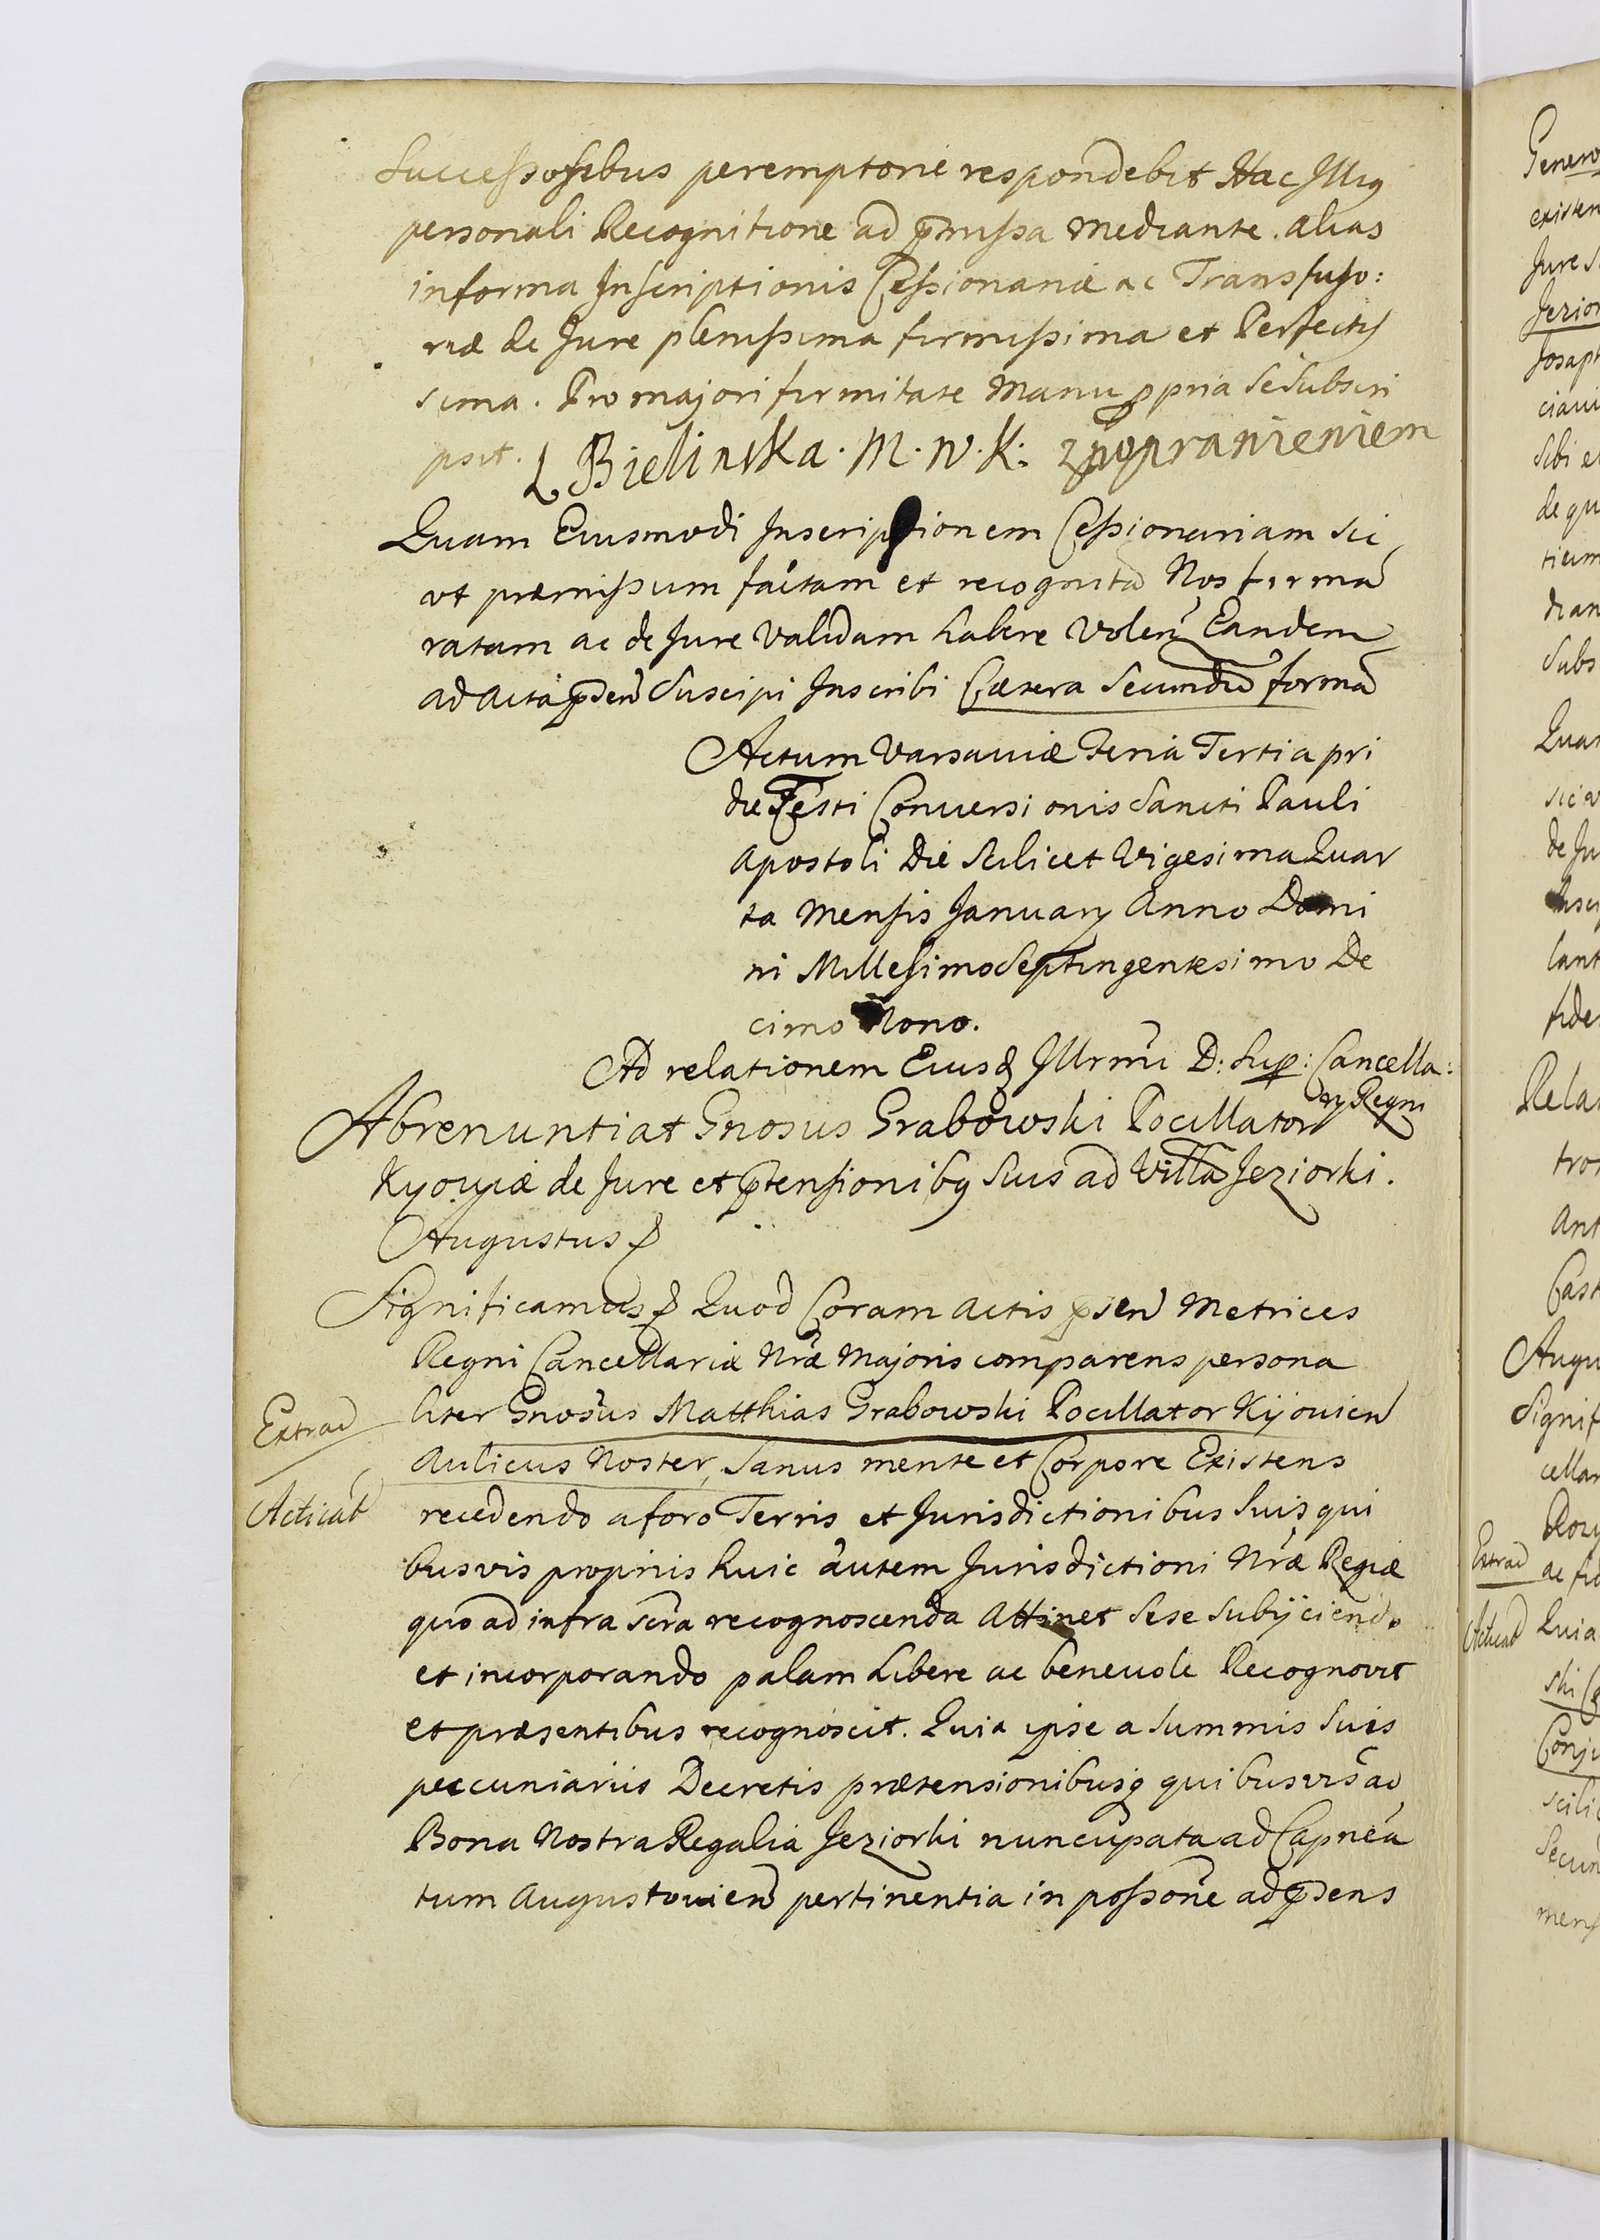 Successoribus peremptorie respondebit Hac Illiq
personali Recognitione ad pmissa mediante. alias
informa Inscriptionis Cessionariæ ac Transfuso:
riæ de Jure plenissima firmissima et Perfectis
sima. Pro majori firmitate Manu ppria se subscri
psit. L Bielinska. M. W. K:
Quam Eiusmodi Inscriptionem Cessionariam sic
vt præmissum factam et recognita Nos firma
ratam ac de Jure validam habere volen Eandem
ad acta psen Suscipi Inscribi Cætera Secundu forma
Actum Varsaviæ Feria Tertia pri
die Festi Conversionis Sancti Pauli
Apostoli Die Scilicet Vigesima Quar
ta Mensis January Anno Domi
ni Millesimo Septingentesimo De
cimo Nono.
Ad relationem Eiusd Illrmi D: Sup: Cancella:
ry Regni
Abrenuntiat Gnosus Grabowski Pocillator
Kyoviæ de Jure et ptensionibq Suis ad Villa Jeziorki.
Augustus
Significamus Quod Coram actis psen Metrices
Regni Cancellariæ Nræ Majoris comparens persona
Extrad
liter Gnosus Matthias Grabowski Pocillator Kijovien
Aulicus Noster, Sanus mente et Corpore Existens
Acticat
recedendo a foro Terris et Jurisdictionibus Suis qui
busvis proprijs huic autem Jurisdictioni Nræ Regiæ
quo ad infra scra recognoscenda attinet sese subijciendo
et incorporando palam Libere ac benevole Recognovit
et præsentibus recognoscit. Quia ipse a summis suis
peccuniariis Decretis prætensionibusq quibusvis ad
Bona Nostra Regalia Jeziorki nuncupata ad Capnea
tum Augustovien pertinentia in possone ad psens